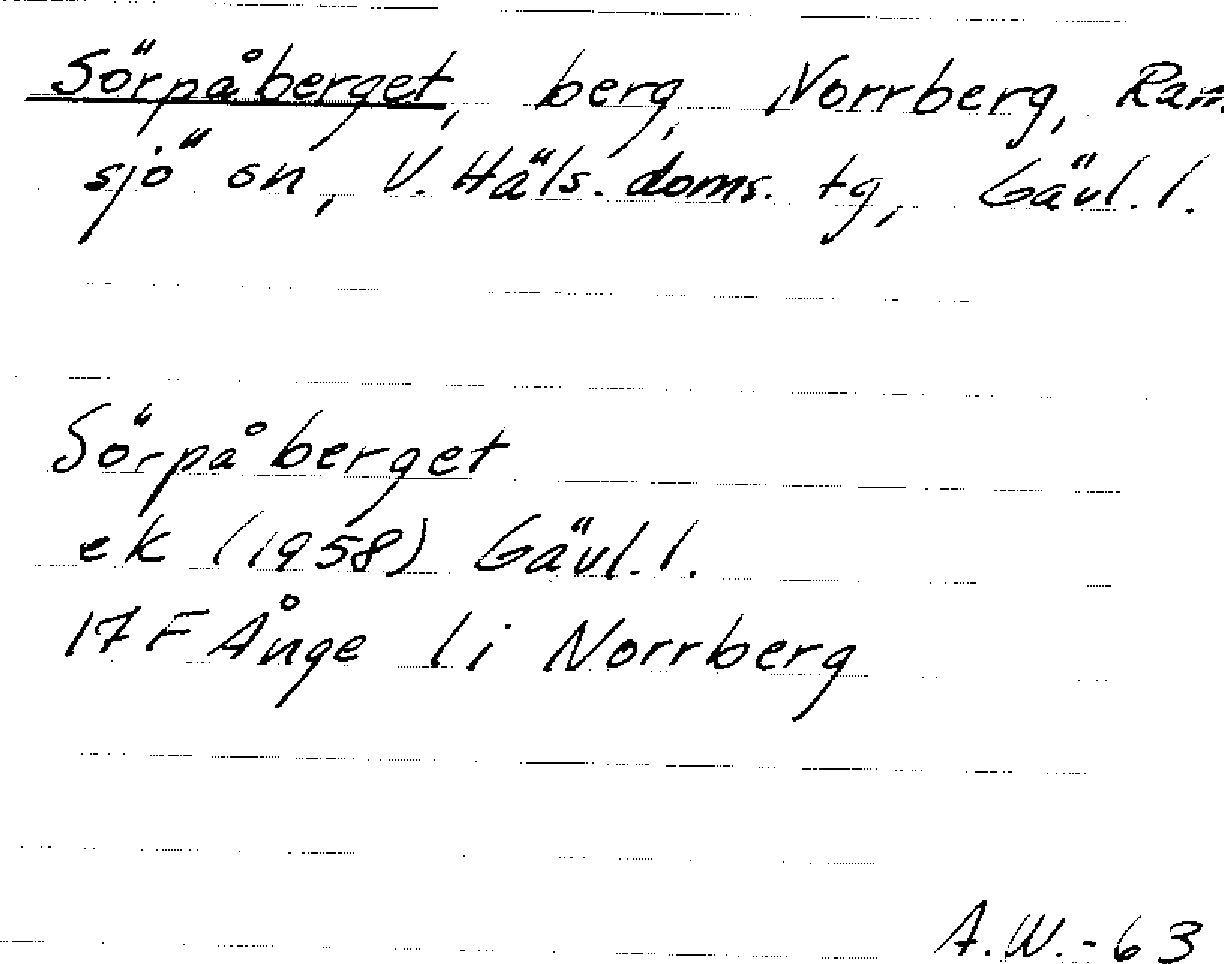 Sörpåberget, berg, Norrberg, Ram-
sjö sn, V. Häls. doms. tg, Gävl. l.
Sörpåberget
ek (1958) Gävl. l.
17F Ånge li Norrberg
A.W.-63